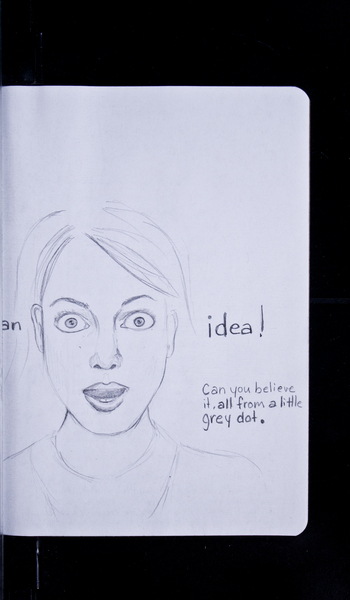 an idea!
Can you believe
it, all from a little
grey dot.